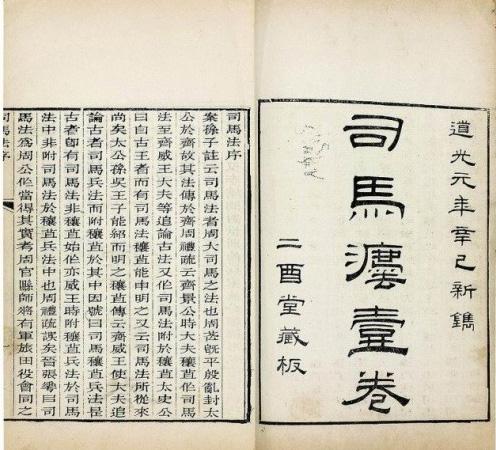 道光元年辛巳新鐫
司馬灋壹卷
二酉堂藏板
司馬法序
案孫子註云司馬法者周大司馬之法也周武旣平殷亂封太
公於齊故其法傳於齊周禮疏云齊景公時大夫穰苴作司馬
法至齊威王大夫等追論古法又作司馬法附於穰苴太史公
曰自古王者而有司馬法穰苴能申明之又云司馬法所從來
尚矣太公孫吳王子能紹而明之穰苴傳云齊威王使大夫追
論古者司馬兵法而附穰苴於其中因號曰司馬穰苴兵法是
古者卽有司馬法非穰苴始作亦威王時附穰苴兵法於司馬
法中非附司馬法於穰苴兵法中也周禮疏誤矣晉張華曰司
馬法爲周公作當得其實考周官縣師將有軍旅田役會同之
司馬法序
一